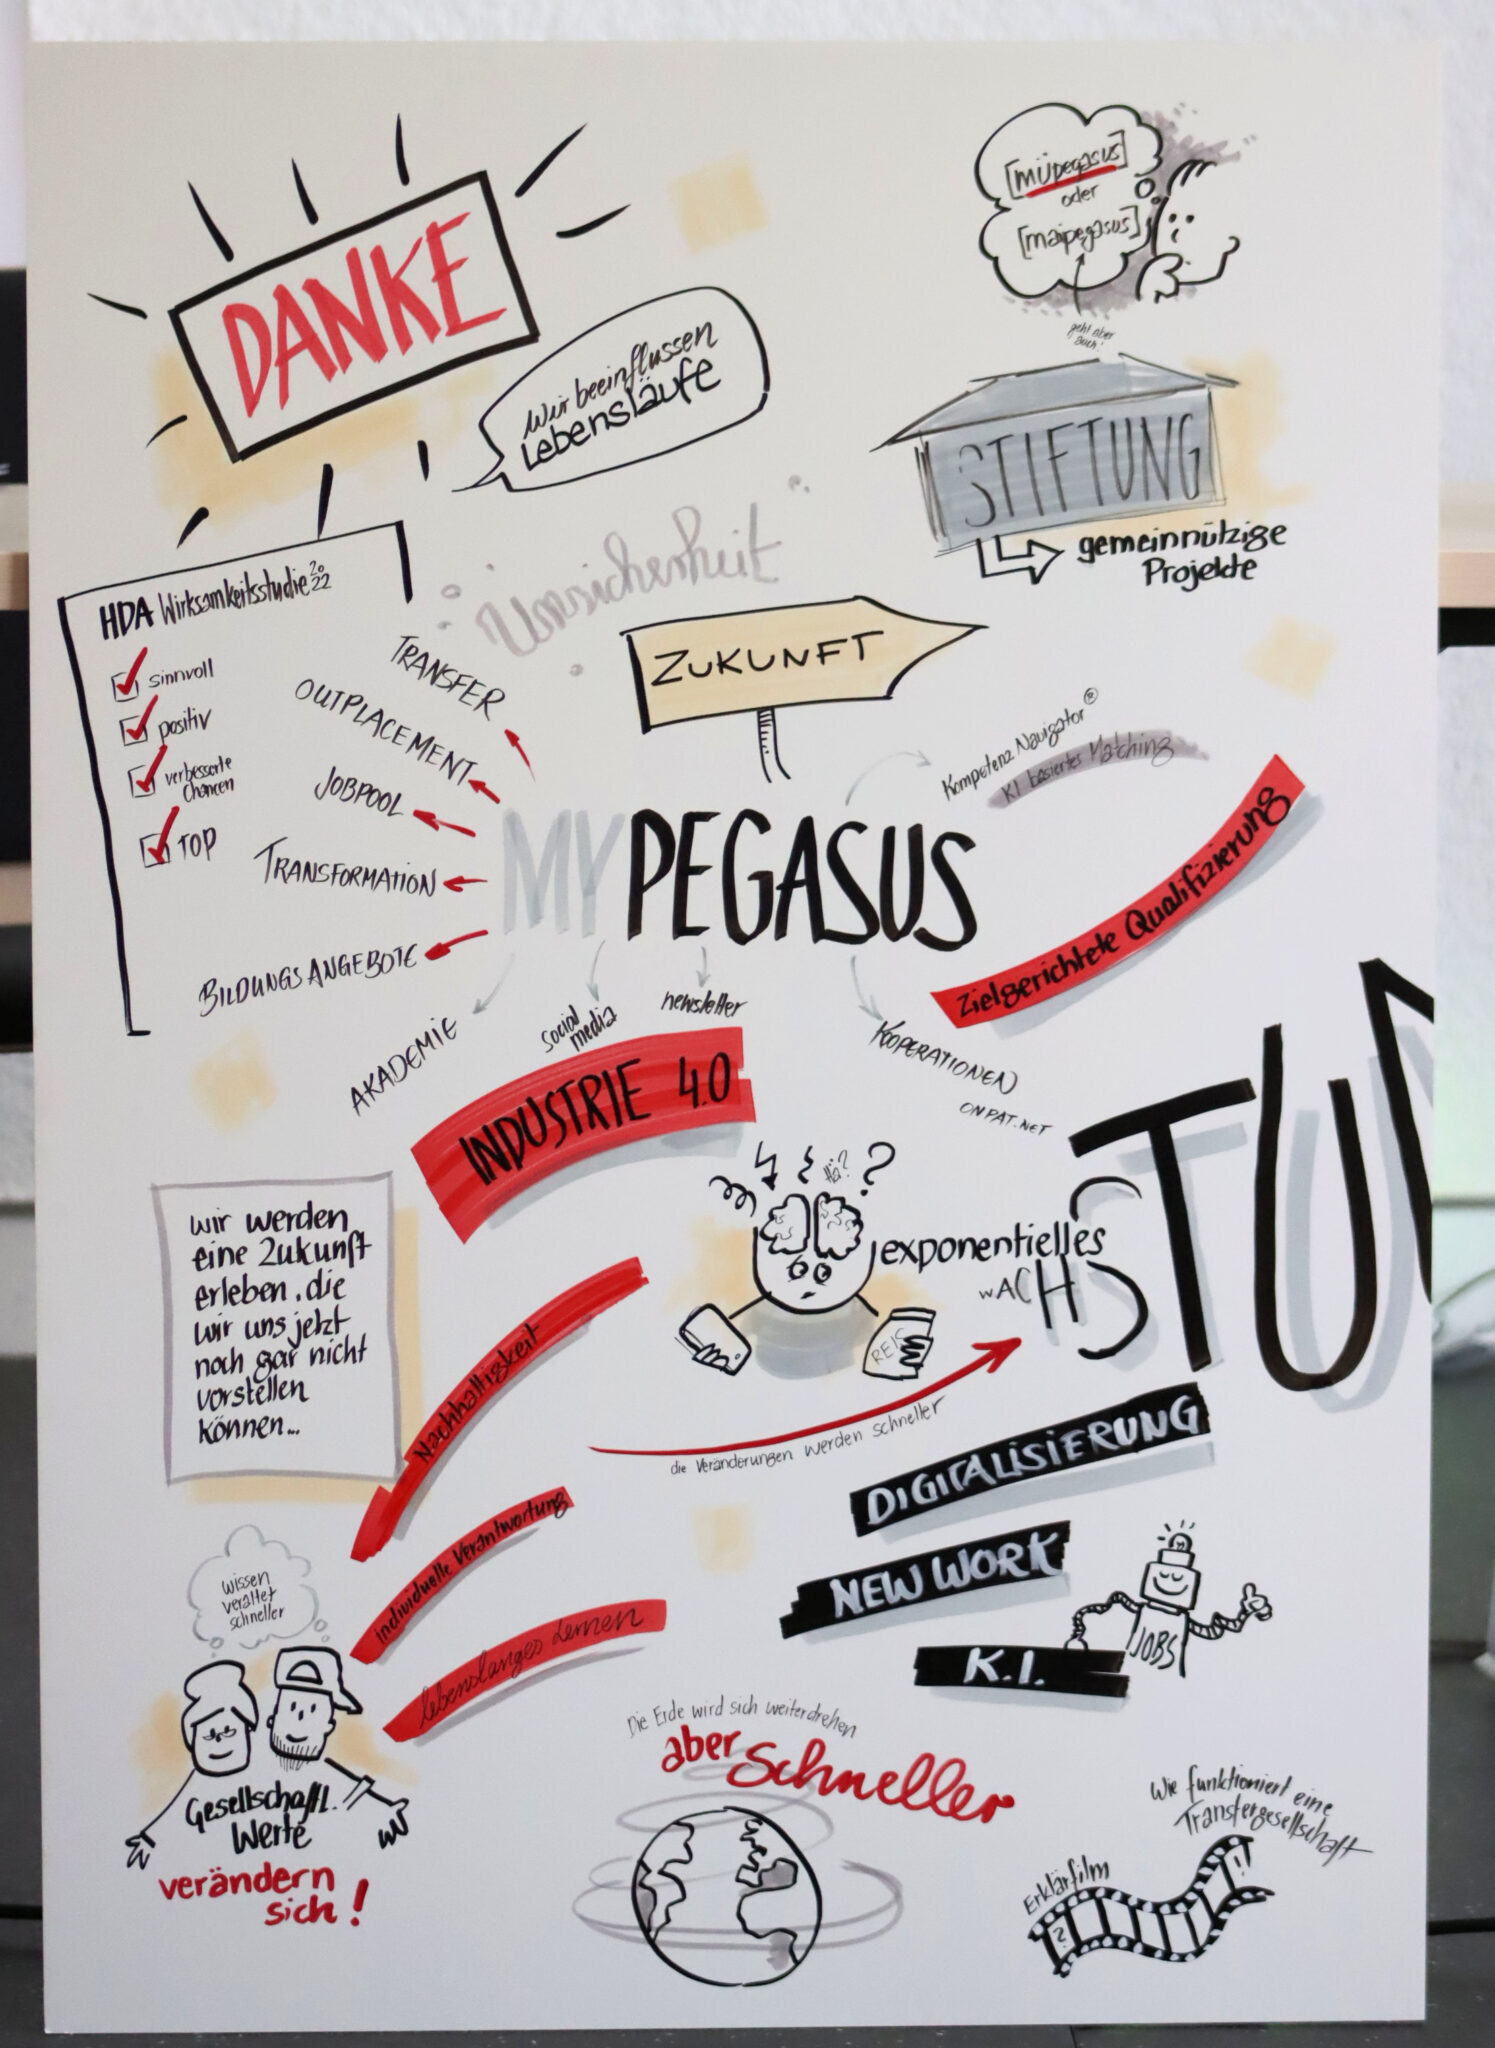 DANKE
Wir beeinflussen
Lebensläufe
[müpegasus]
oder
[maipegasus]
geht aber
auch!
STIFTUNG
gemeinnützige
Projekte
Unsicherheit
HDA Wirksamkeitsstudie 2022
sinnvoll
positiv
verbesserte
Chancen
TOP
TRANSFER
OUTPLACEMENT
JOBPOOL
TRANSFORMATION
BILDUNGSANGEBOTE
ZUKUNFT
MYPEGASUS
Kompetenz Navigator®
KI basiertes Matching
Zielgerichtete Qualifizierung
AKADEMIE
social
media
newsletter
KOOPERATIONEN
ONPAT.NET
INDUSTRIE 4.0
wir werden
eine Zukunft
erleben, die
wir uns jetzt
noch gar nicht
vorstellen
können...
Hä?
?
REIS
exponentielles
WACHSTUM
die Veränderungen werden schneller
Nachhaltigkeit
individuelle Verantwortung
lebenslanges Lernen
DIGITALISIERUNG
NEW WORK
K.I.
JOBS
wissen
veraltet
schneller
Gesellschaftl.
Werte
verändern
sich!
Die Erde wird sich weiterdrehen
aber schneller
Wie funktioniert eine
Transfergesellschaft
Erklärfilm
?
!